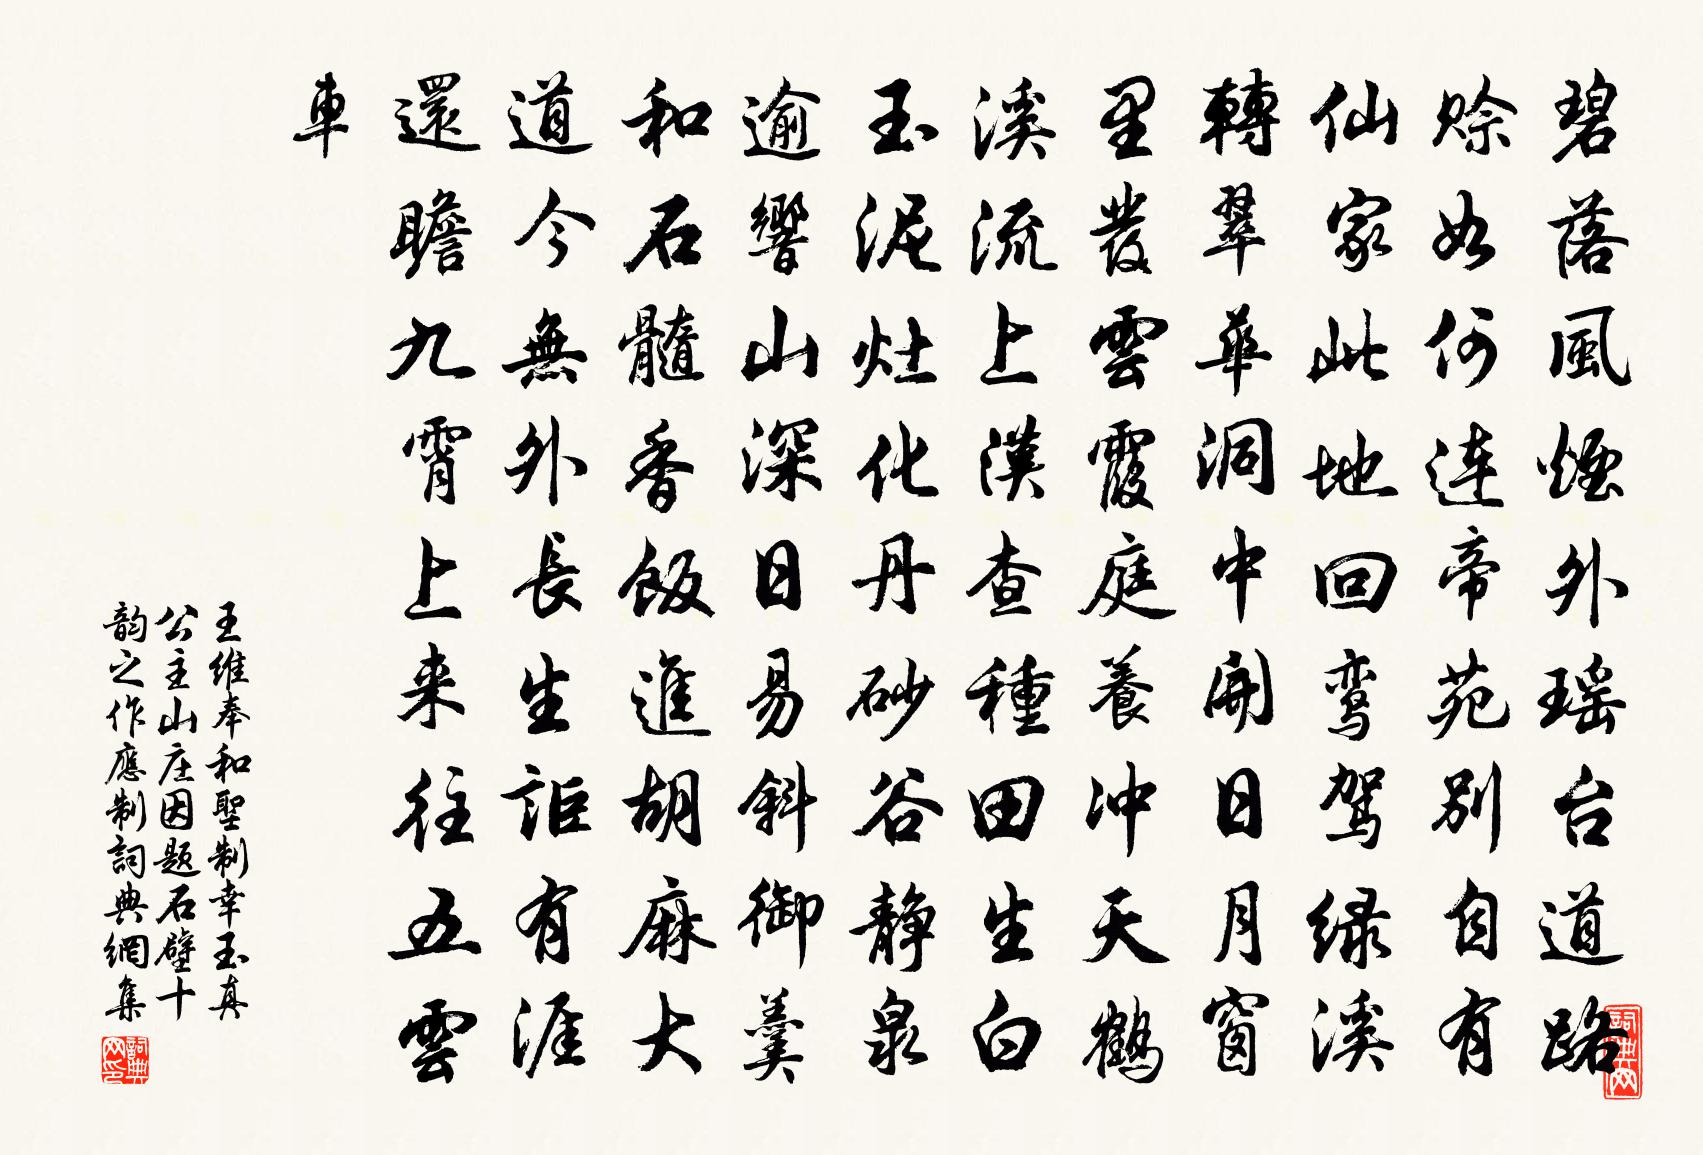 碧落風煙外瑶台道路
賒如何連帝苑別自有
仙家此地回鸾駕緑溪
轉翠華洞中開日月窗
里發雲霞庭養沖天鶴
溪流上漢查種田生白
玉泥灶化丹砂谷静泉
逾響山深日易斜御羹
和石髓香飯進胡麻大
道今無外長生詎有涯
還瞻九霄上来往五雲
車
王維奉和聖制幸玉真
公主山庄因題石壁十
韵之作應制詞典網集
詞典网
詞典网印